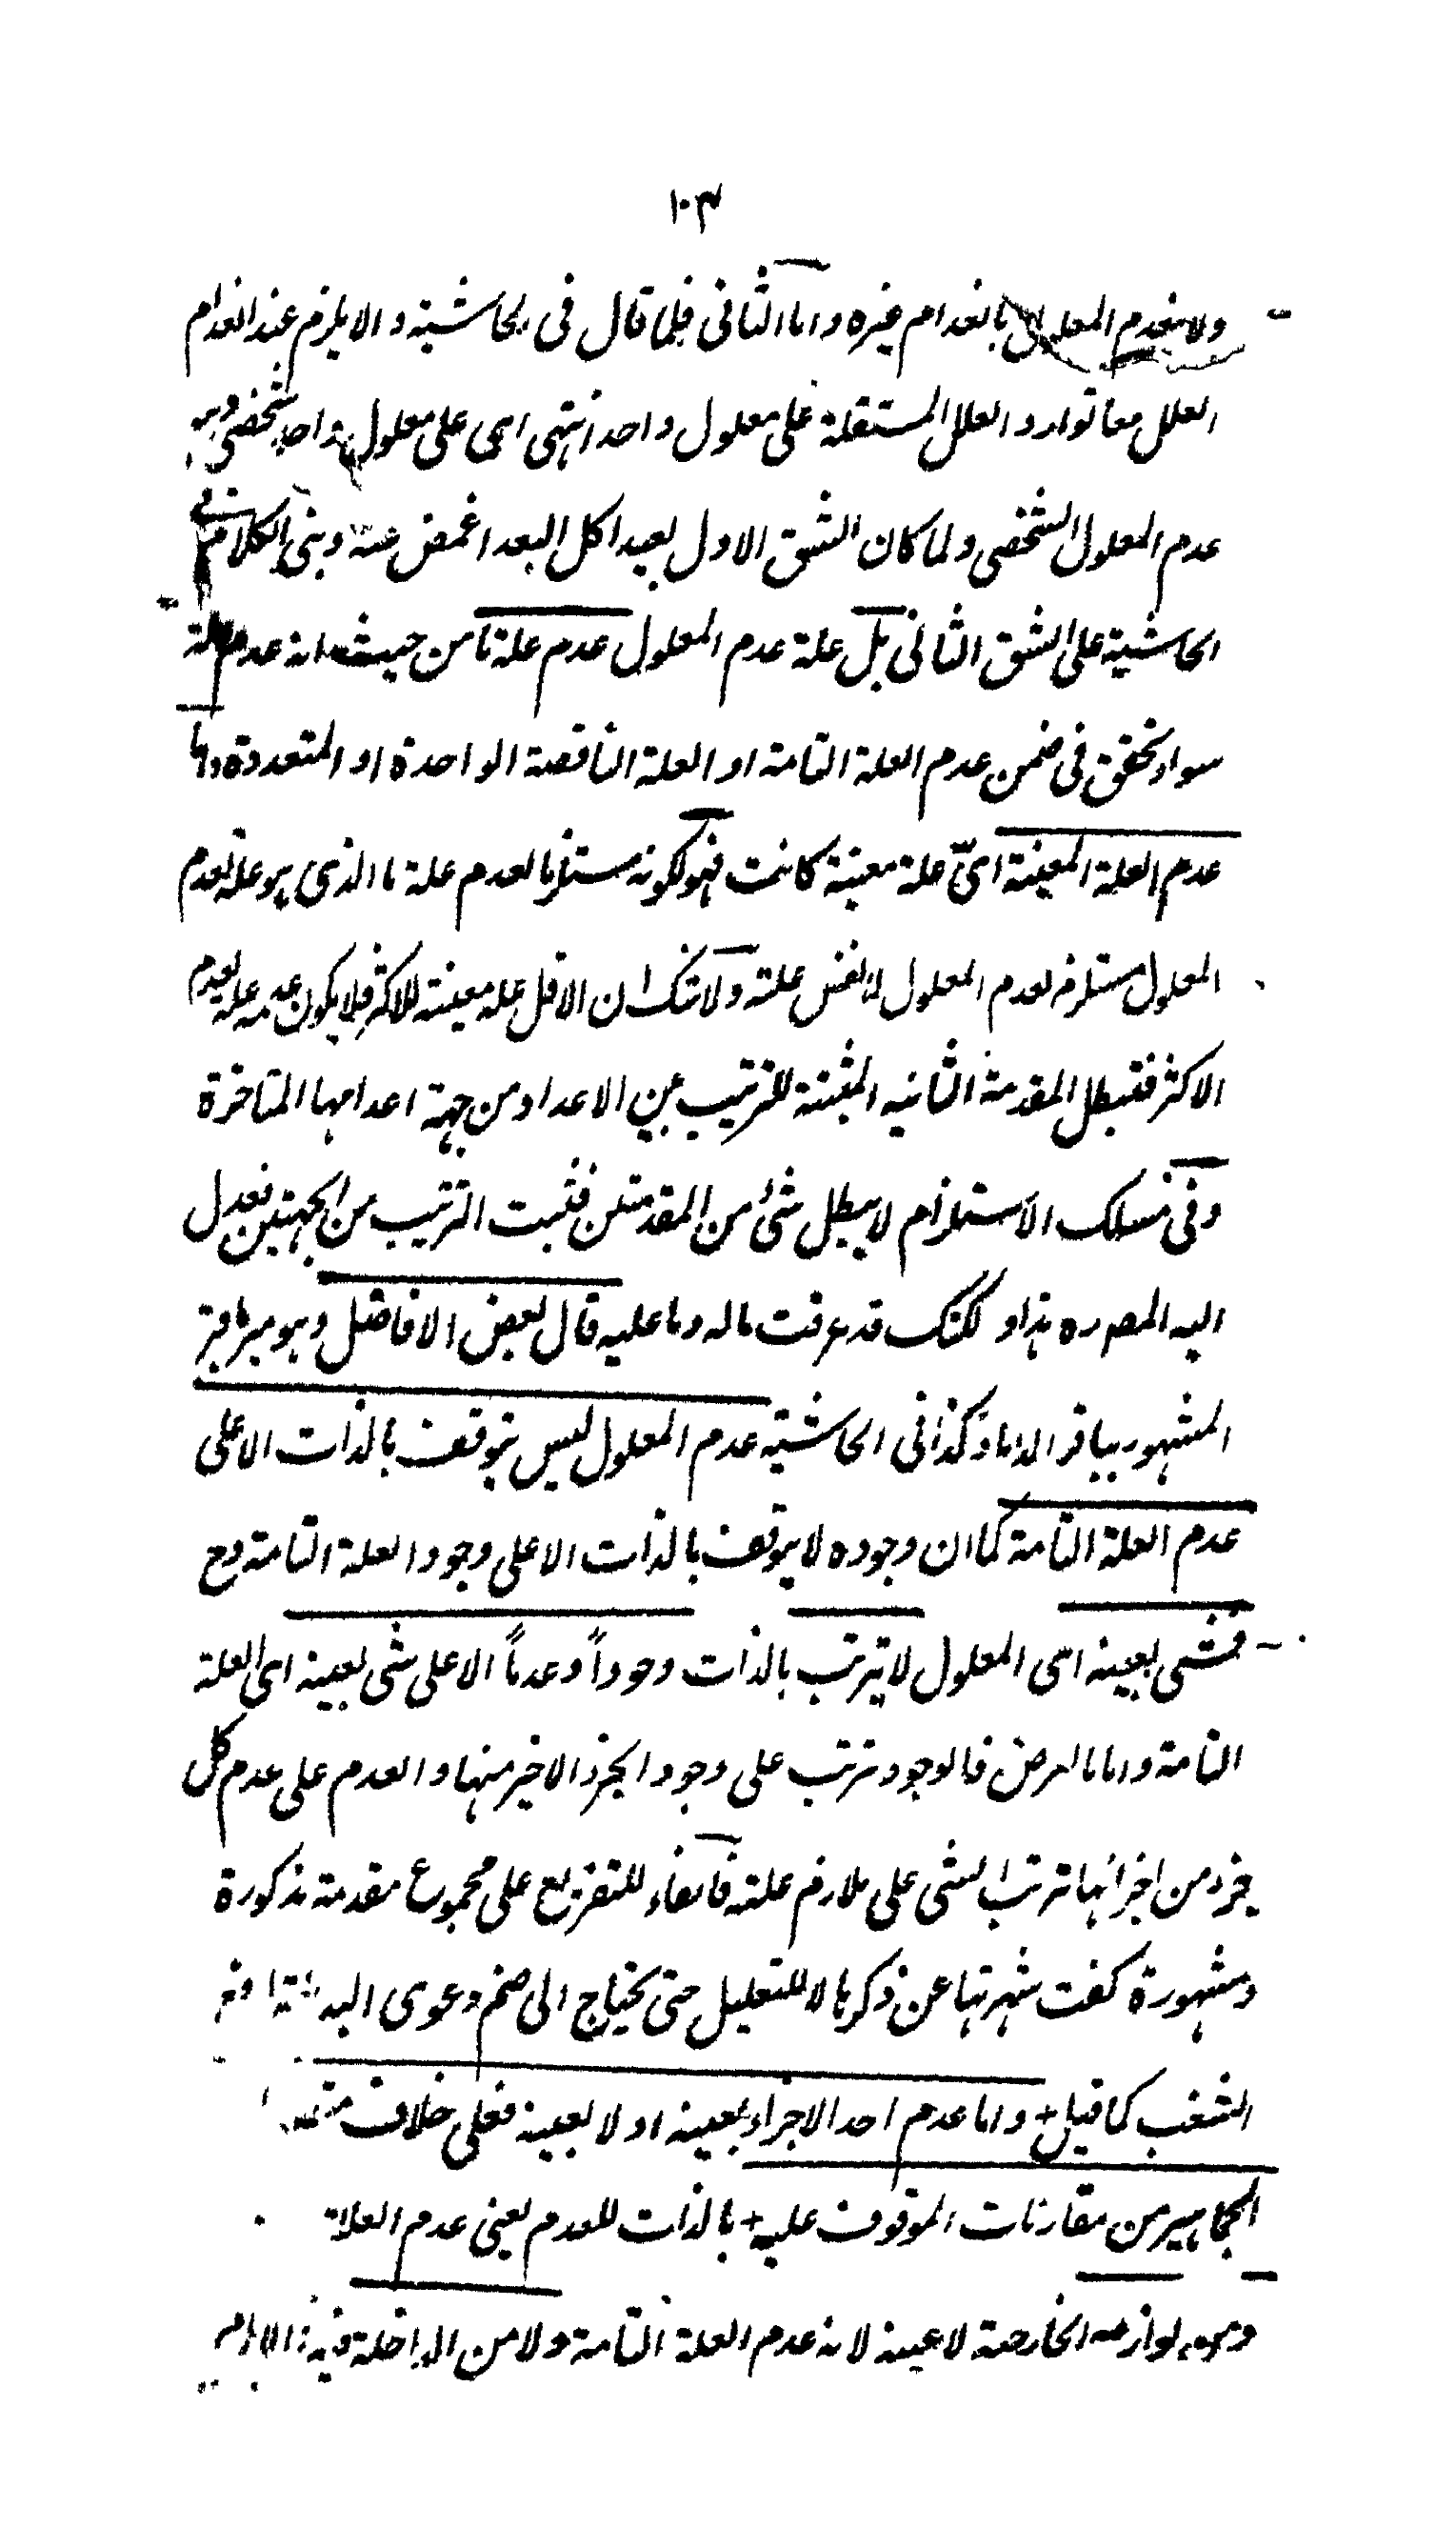 ١٠٣
ولا ينعدم المعلول بانعدام غيره واما الثاني فلما قال في الحاشية والا يلزم عند انعدام
العلل معا توارد العلل المستقلة على معلول واحد انتهى اي على معلول واحد شخصي وهو
عدم المعلول الشخصي ولما كان الشق الاول بعيدا كل البعد اغمض عنه وبنى الكلام في
الحاشية على الشق الثاني بل علة عدم المعلول عدم علة ما من حيث انه عدم علة
سواء تحقق في ضمن عدم العلة التامة او العلة الناقصة الواحدة او المتعددة واما
عدم العلة المعينة اىّ علة معينة كانت فهو لكونه مستلزما لعدم علة ما الذي هو علة لعدم
المعلول مستلزم لعدم المعلول لا نفس علته ولا شك ان الاقل علة معينة للاكثر فلا يكون عدمه علة لعدم
الاكثر فتبطل المقدمة الثانيه المثبتة للترتيب بين الاعداد من جهة اعدامها المتاخرة
وفي مسلك الاستلزام لا يبطل شئ من المقدمتين فثبت الترتيب من الجهتين فعدل
اليه المصره هذا و لكنك قد عرفت ماله وما عليه قال بعض الافاضل وهو مير باقر
المشهور بباقر الداماد كذا في الحاشية عدم المعلول ليس يتوقف بالذات الا على
عدم العلة التامة كما ان وجوده لا يتوقف بالذات الا على وجود العلة التامة وح
فشى بعينه اى المعلول لا يترتب بالذات وجوداً وعدماً الا على شى بعينه اى العلة
التامة واما بالعرض فالوجود ترتب على وجود الجزء الاخير منها والعدم على عدم كل
جزء من اجزائها ترتب الشى على ملازم علته فالفاء للتفريع على مجموع مقدمة مذكورة
ومشهورة كفت شهرتها عن ذكرها لا للتعليل حتى يحتاج الى ضم دعوى البداهة
الشغب كما قيل + واما عدم احد الاجزاء بعينه او لا بعينه فعلى خلاف
الجماهير من مقارنات الموقوف عليه + بالذات للعدم يعني عدم العلة
ومن لوازمه الخارجة لا عينه لانه عدم العلة التامة ولا من الداخلة فيه